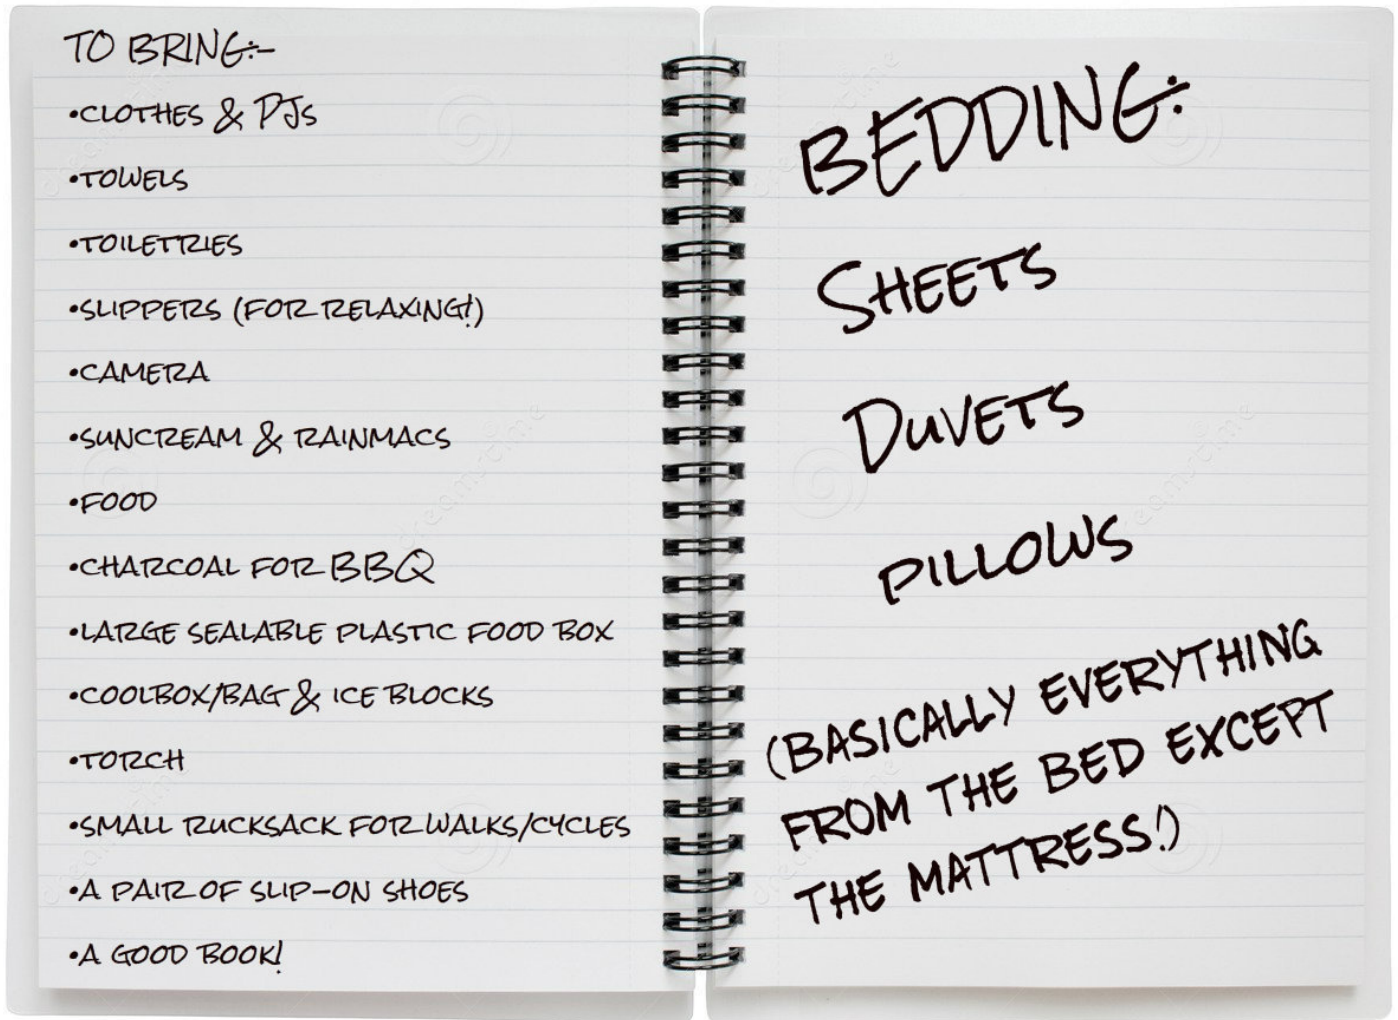 TO BRING:-
•CLOTHES & PJs
•TOWELS
•TOILETRIES
•SLIPPERS (FOR RELAXING!)
•CAMERA
•SUNCREAM & RAINMACS
•FOOD
•CHARCOAL FOR BBQ
•LARGE SEALABLE PLASTIC FOOD BOX
•COOLBOX/BAG & ICE BLOCKS
•TORCH
•SMALL RUCKSACK FOR WALKS/CYCLES
•A PAIR OF SLIP-ON SHOES
•A GOOD BOOK!
BEDDING:
SHEETS
DUVETS
PILLOWS
(BASICALLY EVERYTHING
FROM THE BED EXCEPT
THE MATTRESS!)